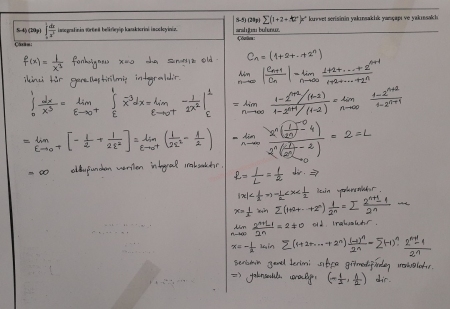 S-4) (20p) ∫₀¹ dx/x³ integralinin türünü belirleyip karakterini inceleyiniz.
Çözüm:
f(x) = 1/x³ fonksiyonu x=0 da sınırsız old.
ikinci tür genelleştirilmiş integraldir.
∫₀¹ dx/x³ = lim ε→0⁺ ∫ε¹ x⁻³dx = lim ε→0⁺ -1/2x² |ε¹
= lim ε→0⁺ [-1/2 + 1/2ε²] = lim ε→0⁺ (1/2ε² - 1/2)
= ∞ olduğundan verilen integral ıraksaktır.
S-5) (20p) ∑(1+2+...+2ⁿ)xⁿ kuvvet serisinin yakınsaklık yarıçapı ve yakınsaklık
aralığını bulunuz.
Çözüm:
Cn = (1+2+...+2ⁿ)
lim n→∞ |Cn+1/Cn| = lim n→∞ 1+2+...+2ⁿ⁺¹/1+2+...+2ⁿ
= lim n→∞ 1-2ⁿ⁺²/(1-2) / 1-2ⁿ⁺¹/(1-2) = lim n→∞ 1-2ⁿ⁺²/1-2ⁿ⁺¹
= lim n→∞ 2ⁿ(1/2ⁿ - 4)/2ⁿ(1/2ⁿ - 2) = 2 = L
R = 1/L = 1/2 dir. ⇒
|x| < 1/2 ⇒ -1/2 < x < 1/2 için yakınsaktır.
x = 1/2 için ∑(1+2+...+2ⁿ) 1/2ⁿ = ∑ 2ⁿ⁺¹-1/2ⁿ
lim n→∞ 2ⁿ⁺¹-1/2ⁿ = 2 ≠ 0 old. ıraksaktır.
x = -1/2 için ∑(1+2+...+2ⁿ) (-1)ⁿ/2ⁿ = ∑(-1)ⁿ 2ⁿ⁺¹-1/2ⁿ
serisinin genel terimi sıfıra gitmediğinden ıraksaktır.
⇒ yakınsaklık aralığı (-1/2, 1/2) dir.